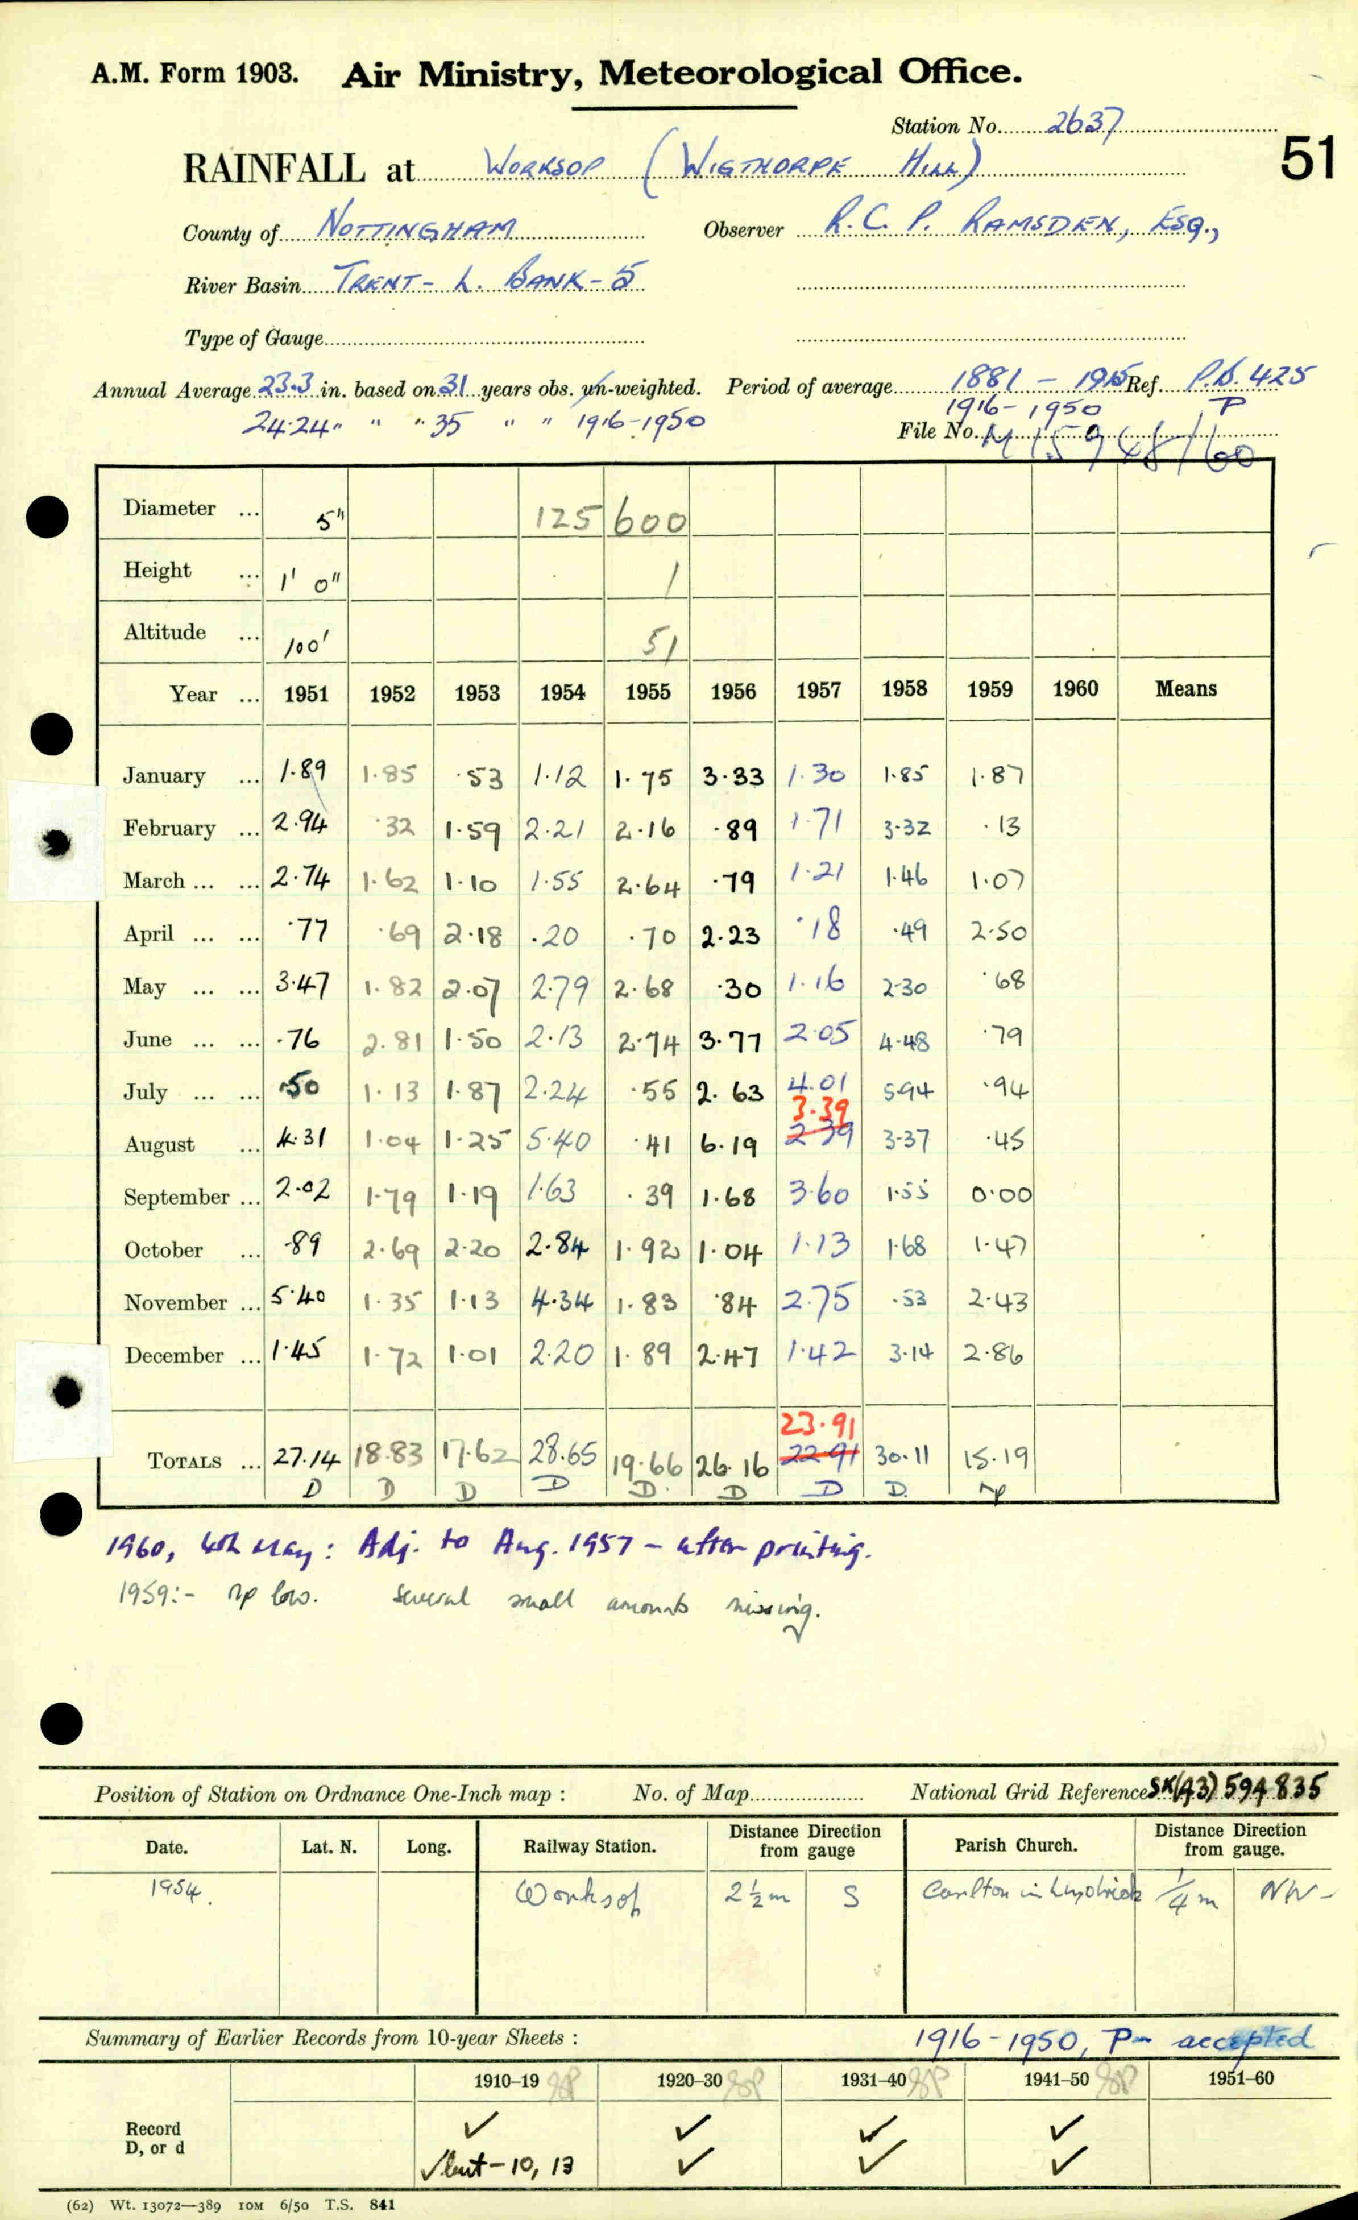 A.M. Form 1903. Air Ministry, Meteorological Office.
Station No. 2637
51
RAINFALL at WORKSOP (WIGTHORPE HILL)
County of NOTTINGHAM Observer R.C.P. RAMSDEN, ESQ.,
River Basin TRENT - L. BANK - 5
Type of Gauge
Annual Average 23.3 in. based on 31 years obs. un-weighted. Period of average 1881 - 1915 Ref. P.D. 425
24.24" " " 35 " " 1916-1950 1916-1950 P
File No. M15948/60
Diameter ... 5" 125600
Height ... 1' 0" 1
Altitude ... 100' 51
Year ... 1951 1952 1953 1954 1955 1956 1957 1958 1959 1960 Means
January ... 1.89 1.85 .53 1.12 1.75 3.33 1.30 1.85 1.87
February ... 2.94 .32 1.59 2.21 2.16 .89 1.71 3.32 .13
March ... ... 2.74 1.62 1.10 1.55 2.64 .79 1.21 1.46 1.07
April ... ... .77 .69 2.18 .20 .70 2.23 .18 .49 2.50
May ... ... 3.47 1.82 2.07 2.79 2.68 .30 1.16 2.30 .68
June ... ... .76 2.81 1.50 2.13 2.74 3.77 2.05 4.48 .79
July ... ... .50 1.13 1.87 2.24 .55 2.63 4.01 5.94 .94
3.39
August ... 4.31 1.04 1.25 5.40 .41 6.19 2.39 3.37 .45
September ... 2.02 1.79 1.19 1.63 .39 1.68 3.60 1.55 0.00
October ... .89 2.69 2.20 2.84 1.92 1.04 1.13 1.68 1.47
November ... 5.40 1.35 1.13 4.34 1.83 .84 2.75 .53 2.43
December ... 1.45 1.72 1.01 2.20 1.89 2.47 1.42 3.14 2.86
23.91
TOTALS ... 27.14 18.83 17.62 28.65 19.66 26.16 22.91 30.11 15.19
D D D D D. D D D. np
1960, 4th May: Adj. to Aug. 1957 - after printing.
1959:- np low. Several small amounts missing.
Position of Station on Ordnance One-Inch map : No. of Map National Grid Reference SK(43) 594 835
Date. Lat. N. Long. Railway Station. Distance Direction from gauge Parish Church. Distance Direction from gauge.
1954. Worksop 2½m S Carlton in Lindrick ¼m NW-
Summary of Earlier Records from 10-year Sheets : 1916-1950, P- accepted
1910-19 1920-30 1931-40 1941-50 1951-60
Record ✓ ✓ ✓ ✓
D, or d ✓but-10, 13 ✓ ✓ ✓
(62) Wt. 13072—389 10M 6/50 T.S. 841